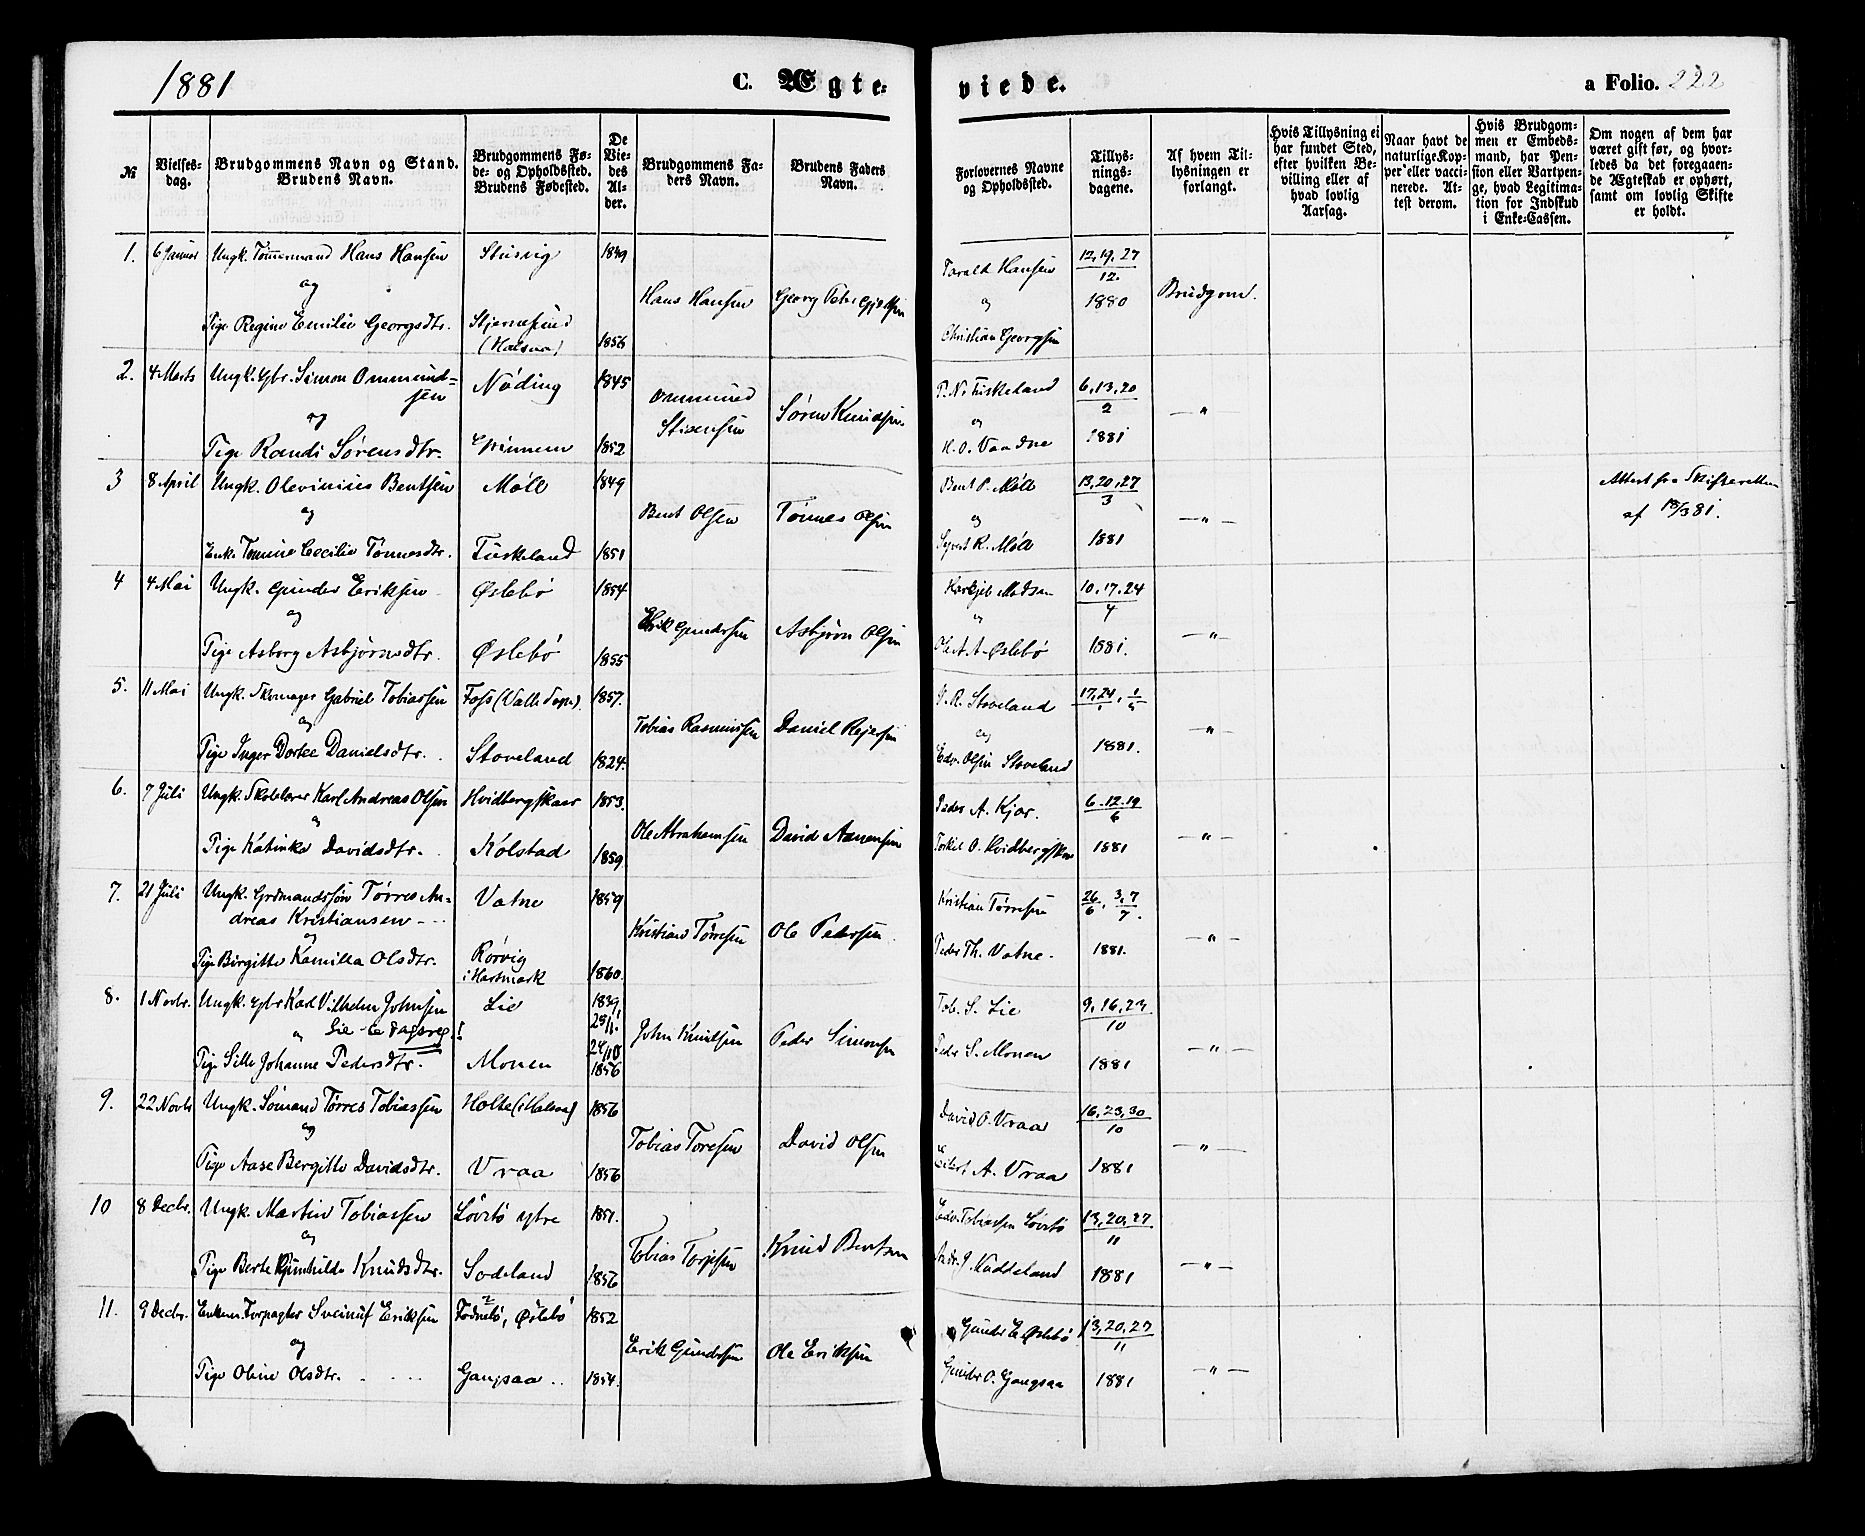 1881
C. Ægte-
viede.
a Folio. 222
№
Vielses-
dag.
Brudgommens Navn og Stand.
Brudens Navn.
Brudgommens Fø-
de- og Opholdssted.
Brudens Fødested.
De
Vie-
des
Al-
der.
Brudgommens Fa-
ders Navn.
Brudens Faders
Navn.
Forlovernes Navne
og Opholdssted.
Tillys-
nings-
dagene.
Af hvem Til-
lysningen er
forlangt.
Hvis Tillysning ei
har fundet Sted,
efter hvilken Be-
villing eller af
hvad lovlig
Aarsag.
Naar havt de
naturlige Kop-
per eller vacci-
nerede. At-
test derom.
Hvis Brudgom-
men er Embeds-
mand, har Pen-
sion eller Vartpen-
ge, hvad Legitima-
tion for Indskud
i Enke-Cassen.
Om nogen af dem har
været gift før, og hvor-
ledes da det foregaaen-
de Ægteskab er ophørt,
samt om lovlig Skifte
er holdt.
1. 6 Januar Ungk. Tømmermand Hans Hansen 1849
og
Pige Regine Emilie Georgsdtr. Stjernesund
(Halsaa) 1856
Hans Hansen Georg Peter
Tarald Hansen 12, 19, 27
12
og 1880 Brudgom.
Christian Georgsen
2. 4 Marts Ungk. Gbr. Simon Ommund-
sen Nøding 1845
og
Pige Randi Sørensdtr. 1852
Ommund Søren Knudsen
6, 13, 20
2
og
K. O. 1881 — " —
3 8 April Ungk. Olevinius Bentsen Møll 1849
og
Enke Tomine Cecilie Tønnesdtr. Tuskeland 1851
Bent Olsen Tønnes Olsen
Bent P. Møll 13, 20, 27
3
og
Syvert R. Møll 1881 — " —
Attest fra Skifteretten
af 18/3 81.
4 4 Mai Ungk. Gunder Eriksen Øslebø 1854
og
Pige Asborg Asbjørnsdtr. Øslebø 1855
Erik Gundersen Asbjørn Olsen
10, 17, 24
4
Ole A. A. Øslebø 1881. — " —
5. 11 Mai Ungk. Skomager Gabriel Tobiassen Foss 1857.
og
Pige Inger Dortea Danielsdtr. Stoveland 1824.
Tobias Rasmussen Daniel
R. Stoveland 17, 24, 1
og
Edv. Olsen Stoveland 1881. "
6. 7 Juli Ungk. Skolelærer Karl Andreas Olsen Hvidbergskaar 1853.
og
Pige Katinka Davidsdtr. Kolstad 1859.
Ole Abrahamsen David Aanensen
Peder A. Kjær. 6. 12. 19
6
Torkel O. Hvidbergskaar 1881 — " —
7. 21 Juli Ungk. Grdmandssøn Tørres An-
dreas Kristiansen Vatne 1859
og
Pige Birgitte Kamilla Olsdtr. Rørvig
i Hartmark 1860.
Kristian Tørresen Ole Pedersen
Kristian Tørresen 26/6, 3,7/7.
Peder Th. Vatne. 1881. — " —
8. 1 Novbr. Ungk. Gbr Karl Vilhelm Johnsen Lie 1839
" Lie - se dagsreg.!
Pige Sille Johanne Pedersdtr. Monen 24/10
1856
John Knudsen Peder Simonsen
Tob. S. Lie 9, 16, 23
10
Peder S. Monen 1881 — " —
9. 22 Novbr Ungk. Sømand Tørres Tobiassen Holte (i Halsaa) 1856
og
Pige Aase Bergitte Davidsdtr. Vraa 1856
Tobias Toresen David Olsen
David O. Vraa 16, 23, 30
10
A. Vraa 1881 — " —
10 8 Decbr. Ungk. Martin Tobiassen Løvstø ytre 1851.
og
Pige Berte Gunhilde Knudsdtr. Sodeland 1856
Tobias Torjesen Knud Bentsen
Edv. Tobiassen Løvstø 13, 20, 27
11
1881 — " —
11. 9 Decbr. Enkem. Forpagter Sveinuf Eriksen Øslebø 1852
og
Pige Oline Olsdtr. Gangsaa 1854.
Erik Gundersen Ole Eriksen
Gunder E Øslebø 13, 20, 27
11
Gunder O. Gangsaa 1881 — " —